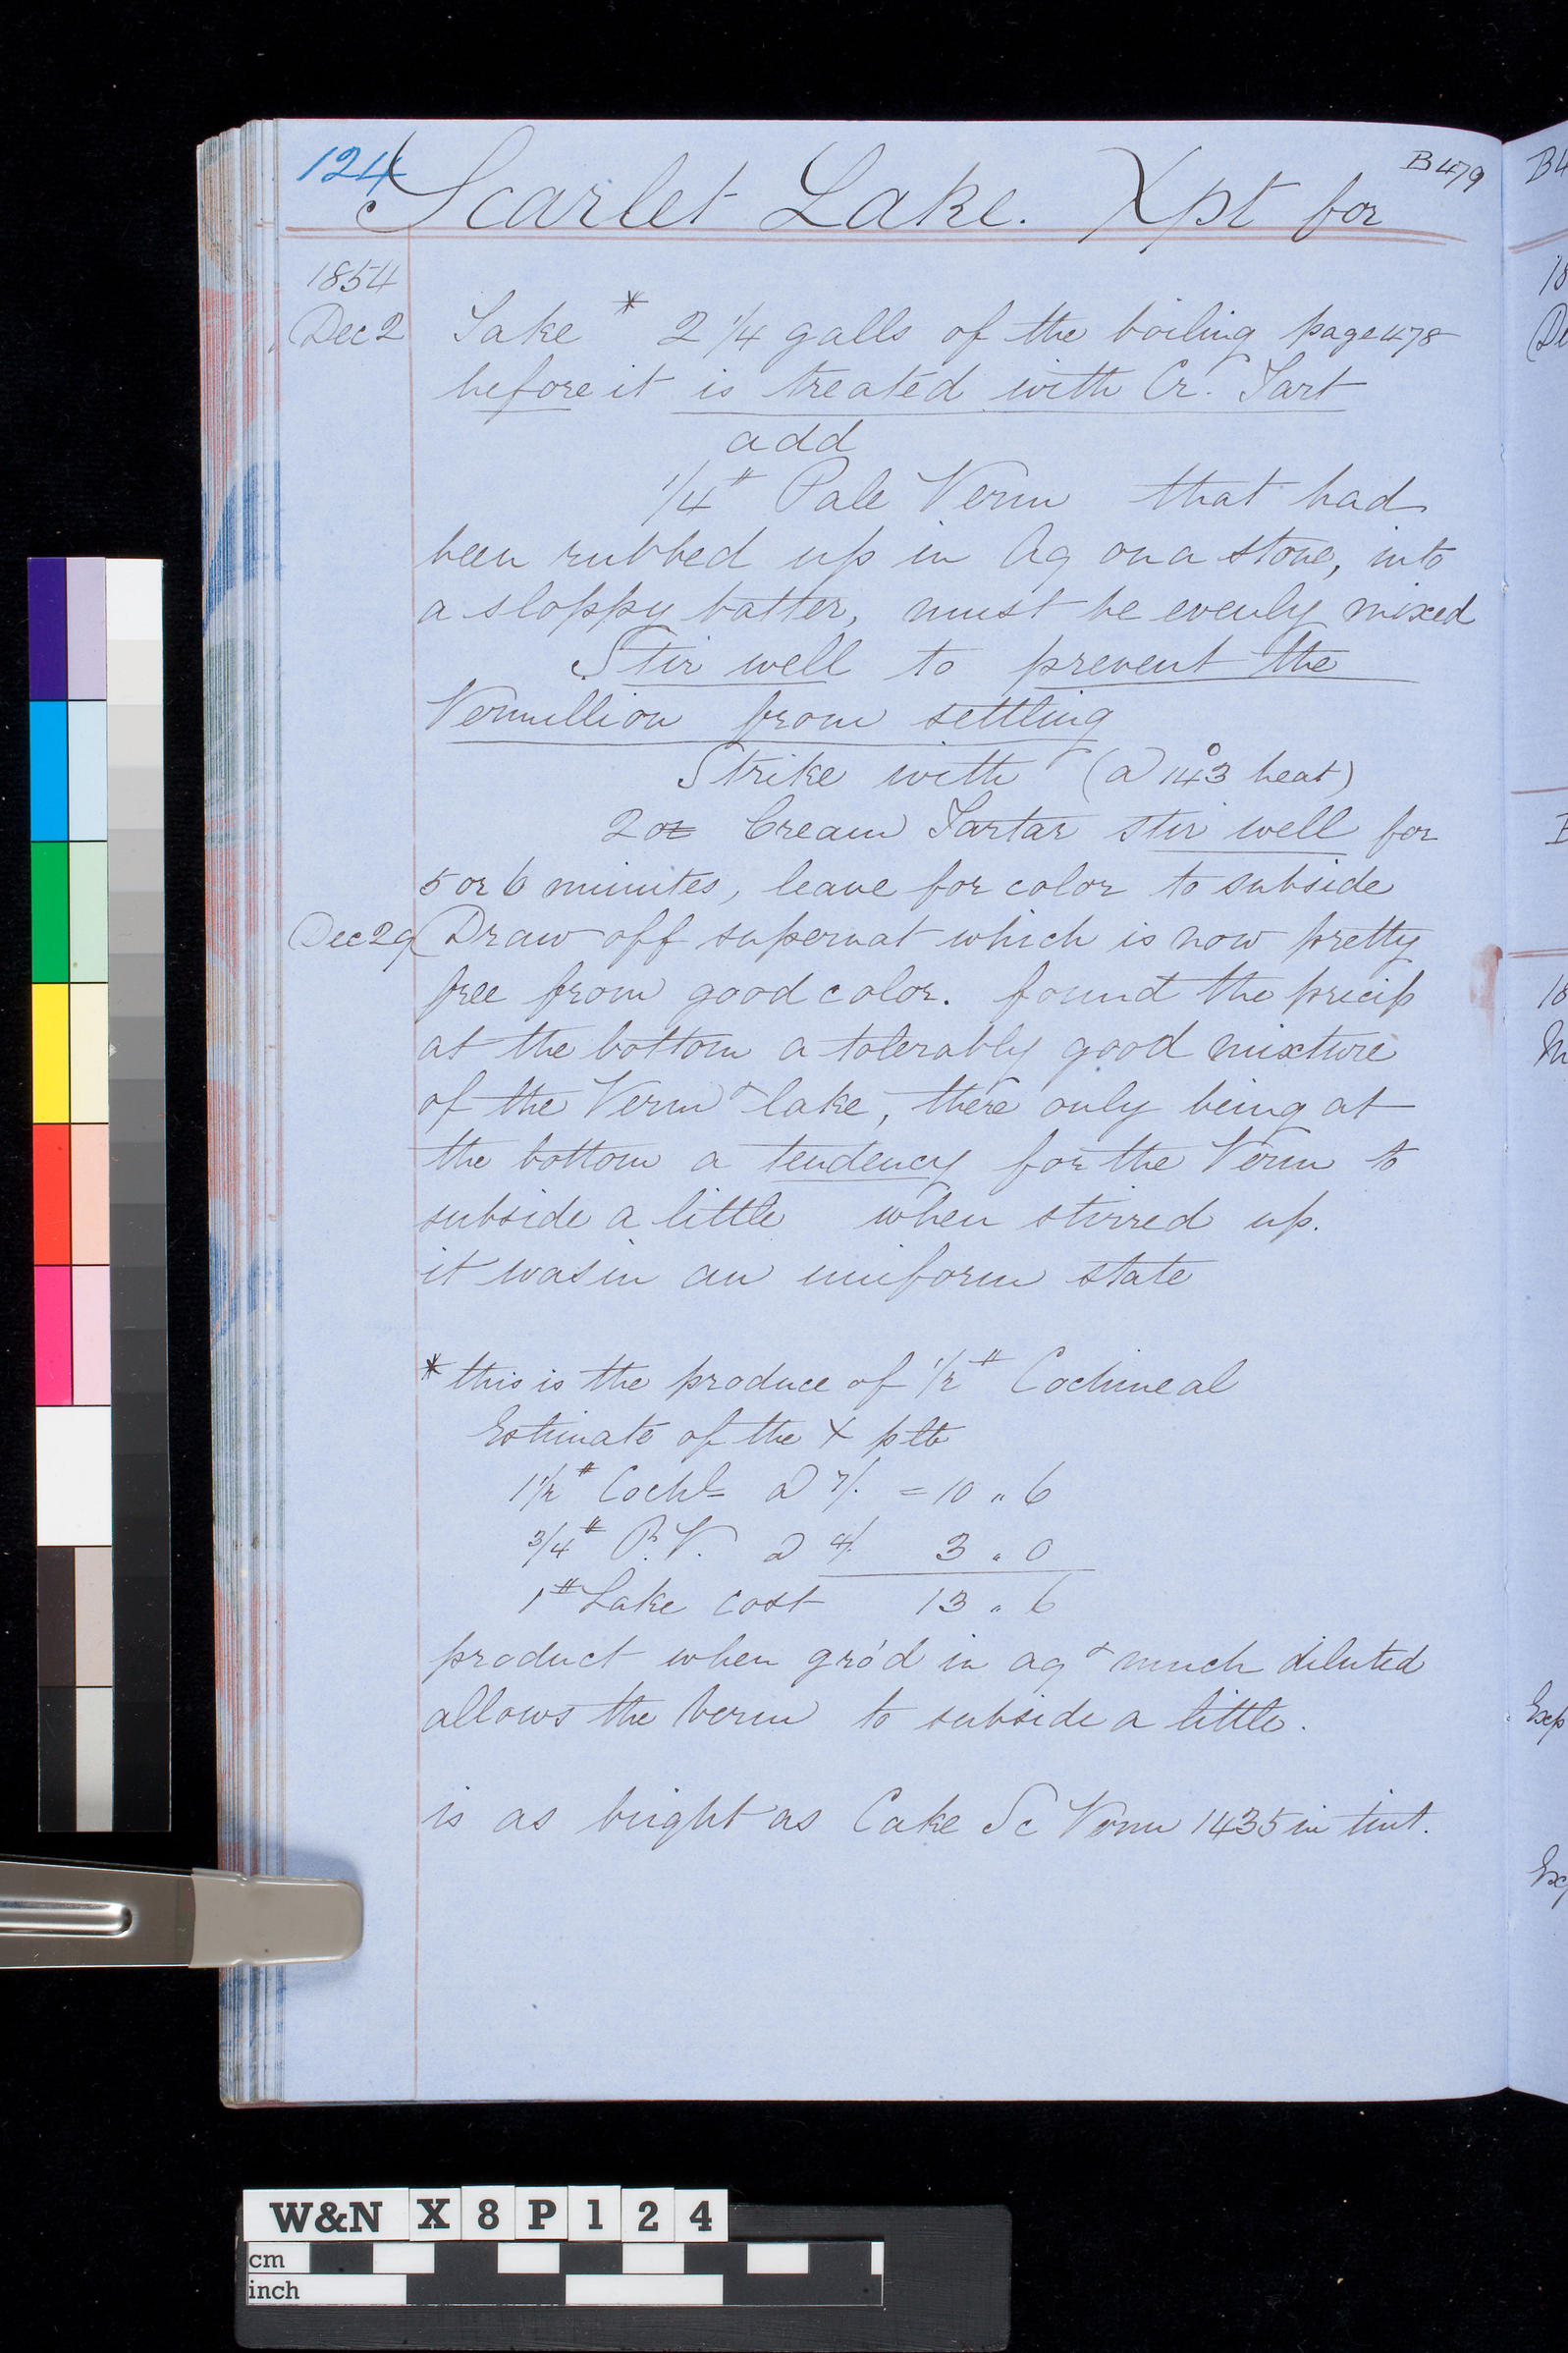 124
B479
Scarlet Lake. Xpt for
1854
Dec 2 Take * 2 1/4 galls of the boiling page 478
before it is treated with Cr. Tart
add
1/4 # Pale Verm that had
been rubbed up in Aq on a stone, into
a sloppy batter, must be evenly mixed
Stir well to prevent the
Vermillion from settling
Strike with (a 143° heat)
2 oz Cream Tartar stir well for
5 or 6 minutes, leave for color to subside
Dec 29 Draw off supernat which is now pretty
free from good color. found the precip
at the bottom a tolerably good mixture
of the Verm & lake, there only being at
the bottom a tendency for the Verm to
subside a little when stirred up.
it was in an uniform state
* this is the produce of 1/2 # Cochineal
Estimate of the X p lb
1 1/2 # Cochl a 7/. = 10 " 6
3/4 # P.V. a 4/. 3 " 0
1 # Lake cost 13 " 6
product when gro'd in aq & much diluted
allows the Verm to subside a little.
is as bright as Cake Sc Verm 1435 in tint.
B4
18
De
18
M
Exp
Ex
W&N X 8 P 1 2 4
cm
inch